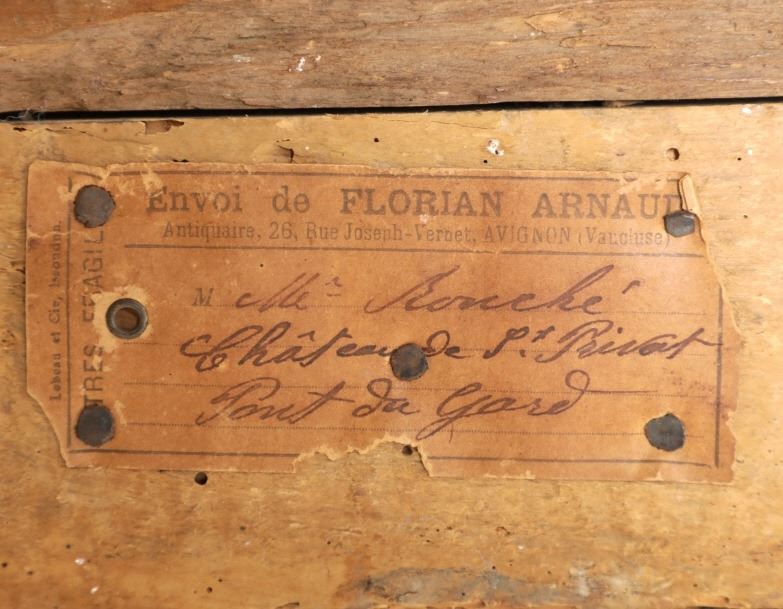 Envoi de FLORIAN ARNAUD
Antiquaire, 26, Rue Joseph-Vernet, AVIGNON (Vaucluse)
M Mr Rouché
Château de St Privat
Pont du Gard
TRES FRAGILE
Lebeau et Cie, Issoudun.